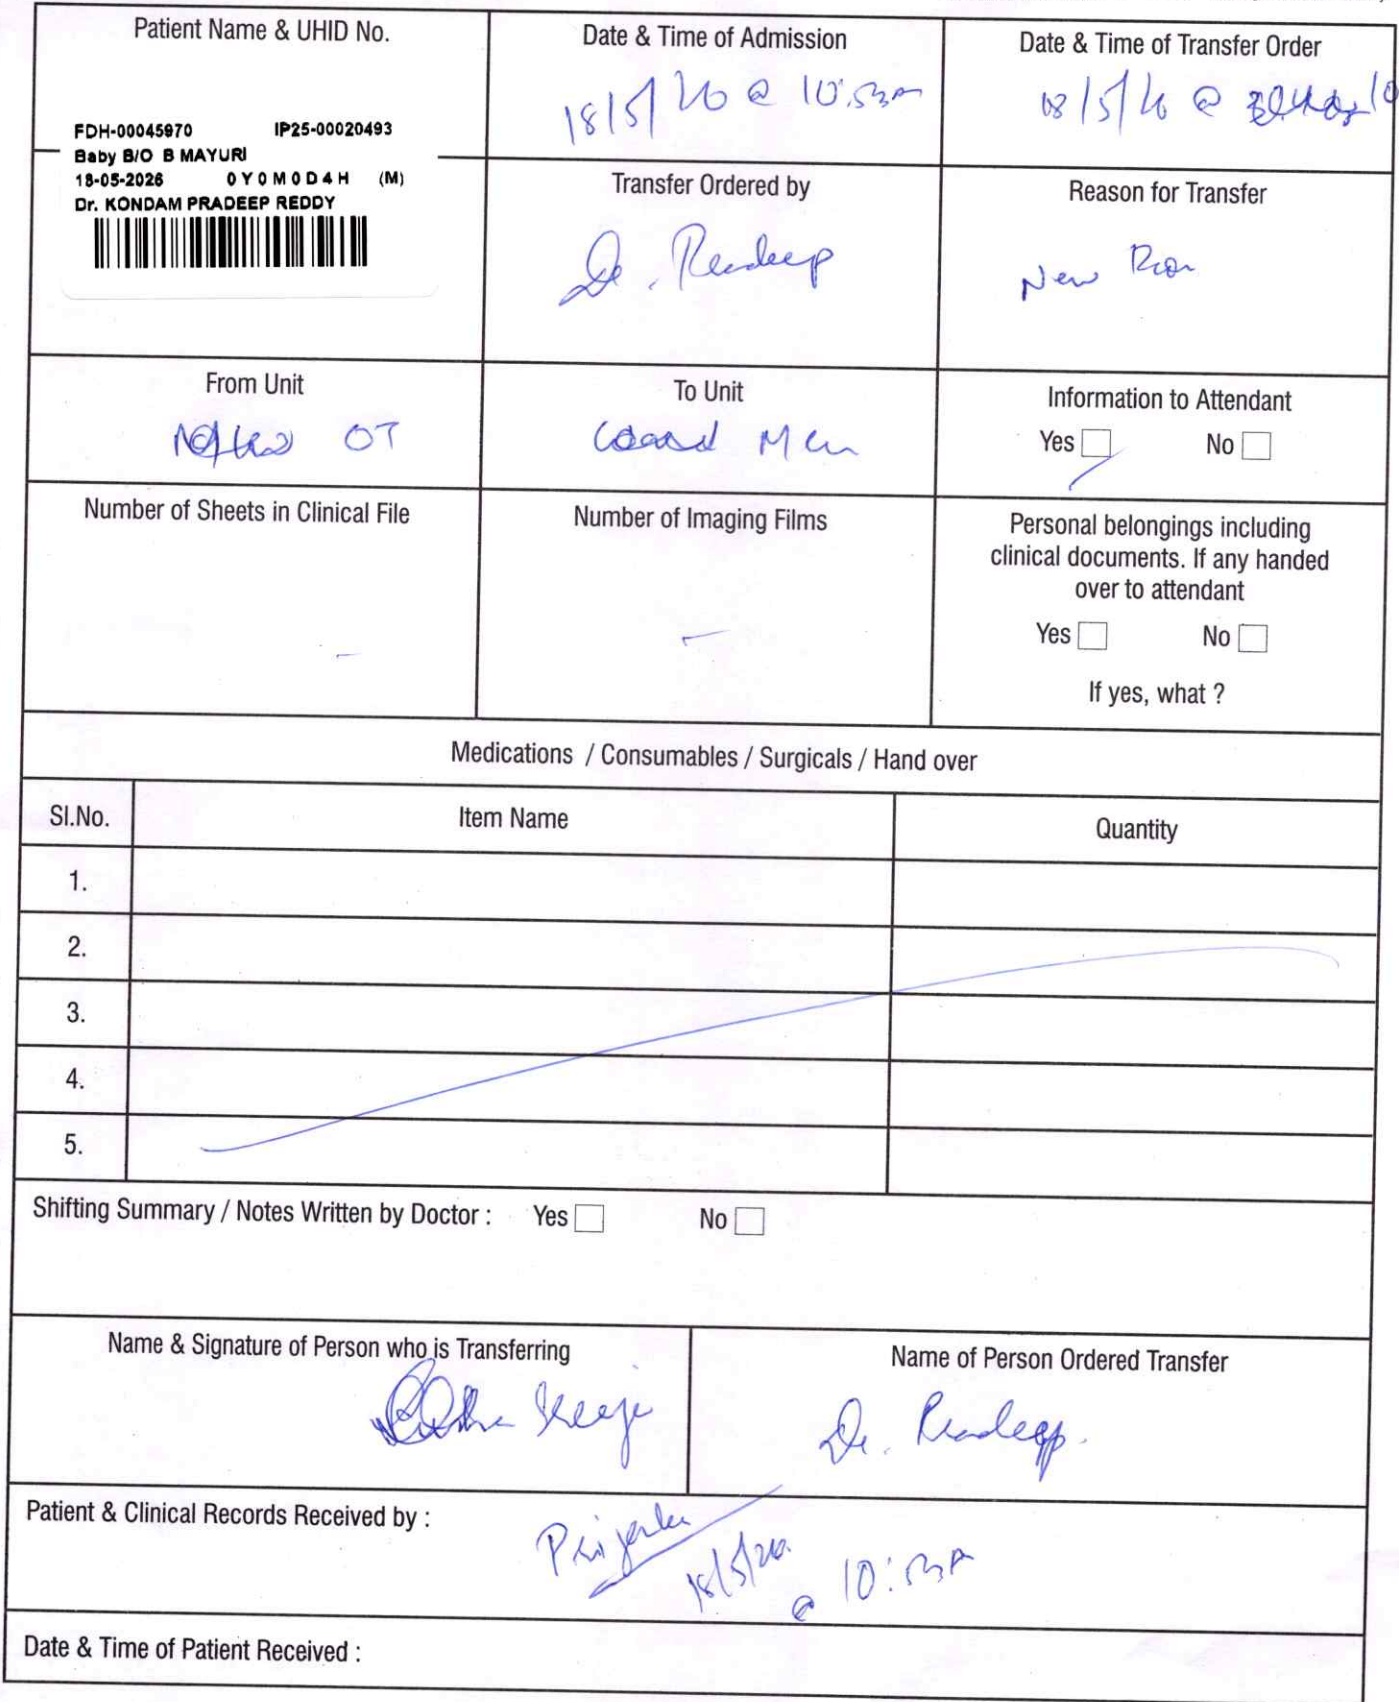 Patient Name & UHID No.
FDH-00045970 IP25-00020493
Baby B/O B MAYURI
18-05-2026 0Y0M0D4H (M)
Dr. KONDAM PRADEEP REDDY
Date & Time of Admission
18/5/26 @ 10:53am
Date & Time of Transfer Order
18/5/26 @
Transfer Ordered by
Dr. Pradeep
Reason for Transfer
New
From Unit
OT
To Unit
Information to Attendant
Yes No
Number of Sheets in Clinical File
-
Number of Imaging Films
-
Personal belongings including
clinical documents. If any handed
over to attendant
Yes No
If yes, what ?
Medications / Consumables / Surgicals / Hand over
Sl.No. Item Name Quantity
1.
2.
3.
4.
5.
Shifting Summary / Notes Written by Doctor : Yes No
Name & Signature of Person who is Transferring
Name of Person Ordered Transfer
Dr. Pradeep
Patient & Clinical Records Received by :
Priyanka
18/5/26
@ 10:53A
Date & Time of Patient Received :